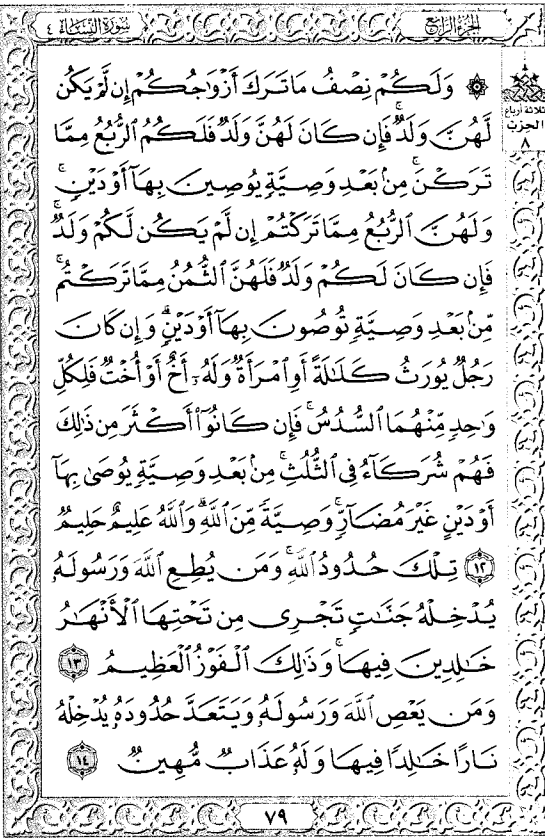 الجزء الرابع
سورة النساء ٤
ثلاثة أرباع
الحزب
٨
۞ وَلَكُمْ نِصْفُ مَا تَرَكَ أَزْوَٰجُكُمْ إِن لَّمْ يَكُن
لَّهُنَّ وَلَدٌ ۚ فَإِن كَانَ لَهُنَّ وَلَدٌ فَلَكُمُ ٱلرُّبُعُ مِمَّا
تَرَكْنَ ۚ مِنۢ بَعْدِ وَصِيَّةٍ يُوصِينَ بِهَآ أَوْ دَيْنٍ ۚ
وَلَهُنَّ ٱلرُّبُعُ مِمَّا تَرَكْتُمْ إِن لَّمْ يَكُن لَّكُمْ وَلَدٌ ۚ
فَإِن كَانَ لَكُمْ وَلَدٌ فَلَهُنَّ ٱلثُّمُنُ مِمَّا تَرَكْتُم ۚ
مِّنۢ بَعْدِ وَصِيَّةٍ تُوصُونَ بِهَآ أَوْ دَيْنٍ ۗ وَإِن كَانَ
رَجُلٌ يُورَثُ كَلَٰلَةً أَوِ ٱمْرَأَةٌ وَلَهُۥٓ أَخٌ أَوْ أُخْتٌ فَلِكُلِّ
وَٰحِدٍ مِّنْهُمَا ٱلسُّدُسُ ۚ فَإِن كَانُوٓا۟ أَكْثَرَ مِن ذَٰلِكَ
فَهُمْ شُرَكَآءُ فِى ٱلثُّلُثِ ۚ مِنۢ بَعْدِ وَصِيَّةٍ يُوصَىٰ بِهَآ
أَوْ دَيْنٍ غَيْرَ مُضَآرٍّ ۚ وَصِيَّةً مِّنَ ٱللَّهِ ۗ وَٱللَّهُ عَلِيمٌ حَلِيمٌ
﴿١٢﴾ تِلْكَ حُدُودُ ٱللَّهِ ۚ وَمَن يُطِعِ ٱللَّهَ وَرَسُولَهُۥ
يُدْخِلْهُ جَنَّٰتٍ تَجْرِى مِن تَحْتِهَا ٱلْأَنْهَٰرُ
خَٰلِدِينَ فِيهَا ۚ وَذَٰلِكَ ٱلْفَوْزُ ٱلْعَظِيمُ ﴿١٣﴾
وَمَن يَعْصِ ٱللَّهَ وَرَسُولَهُۥ وَيَتَعَدَّ حُدُودَهُۥ يُدْخِلْهُ
نَارًا خَٰلِدًا فِيهَا وَلَهُۥ عَذَابٌ مُّهِينٌ ﴿١٤﴾
٧٩